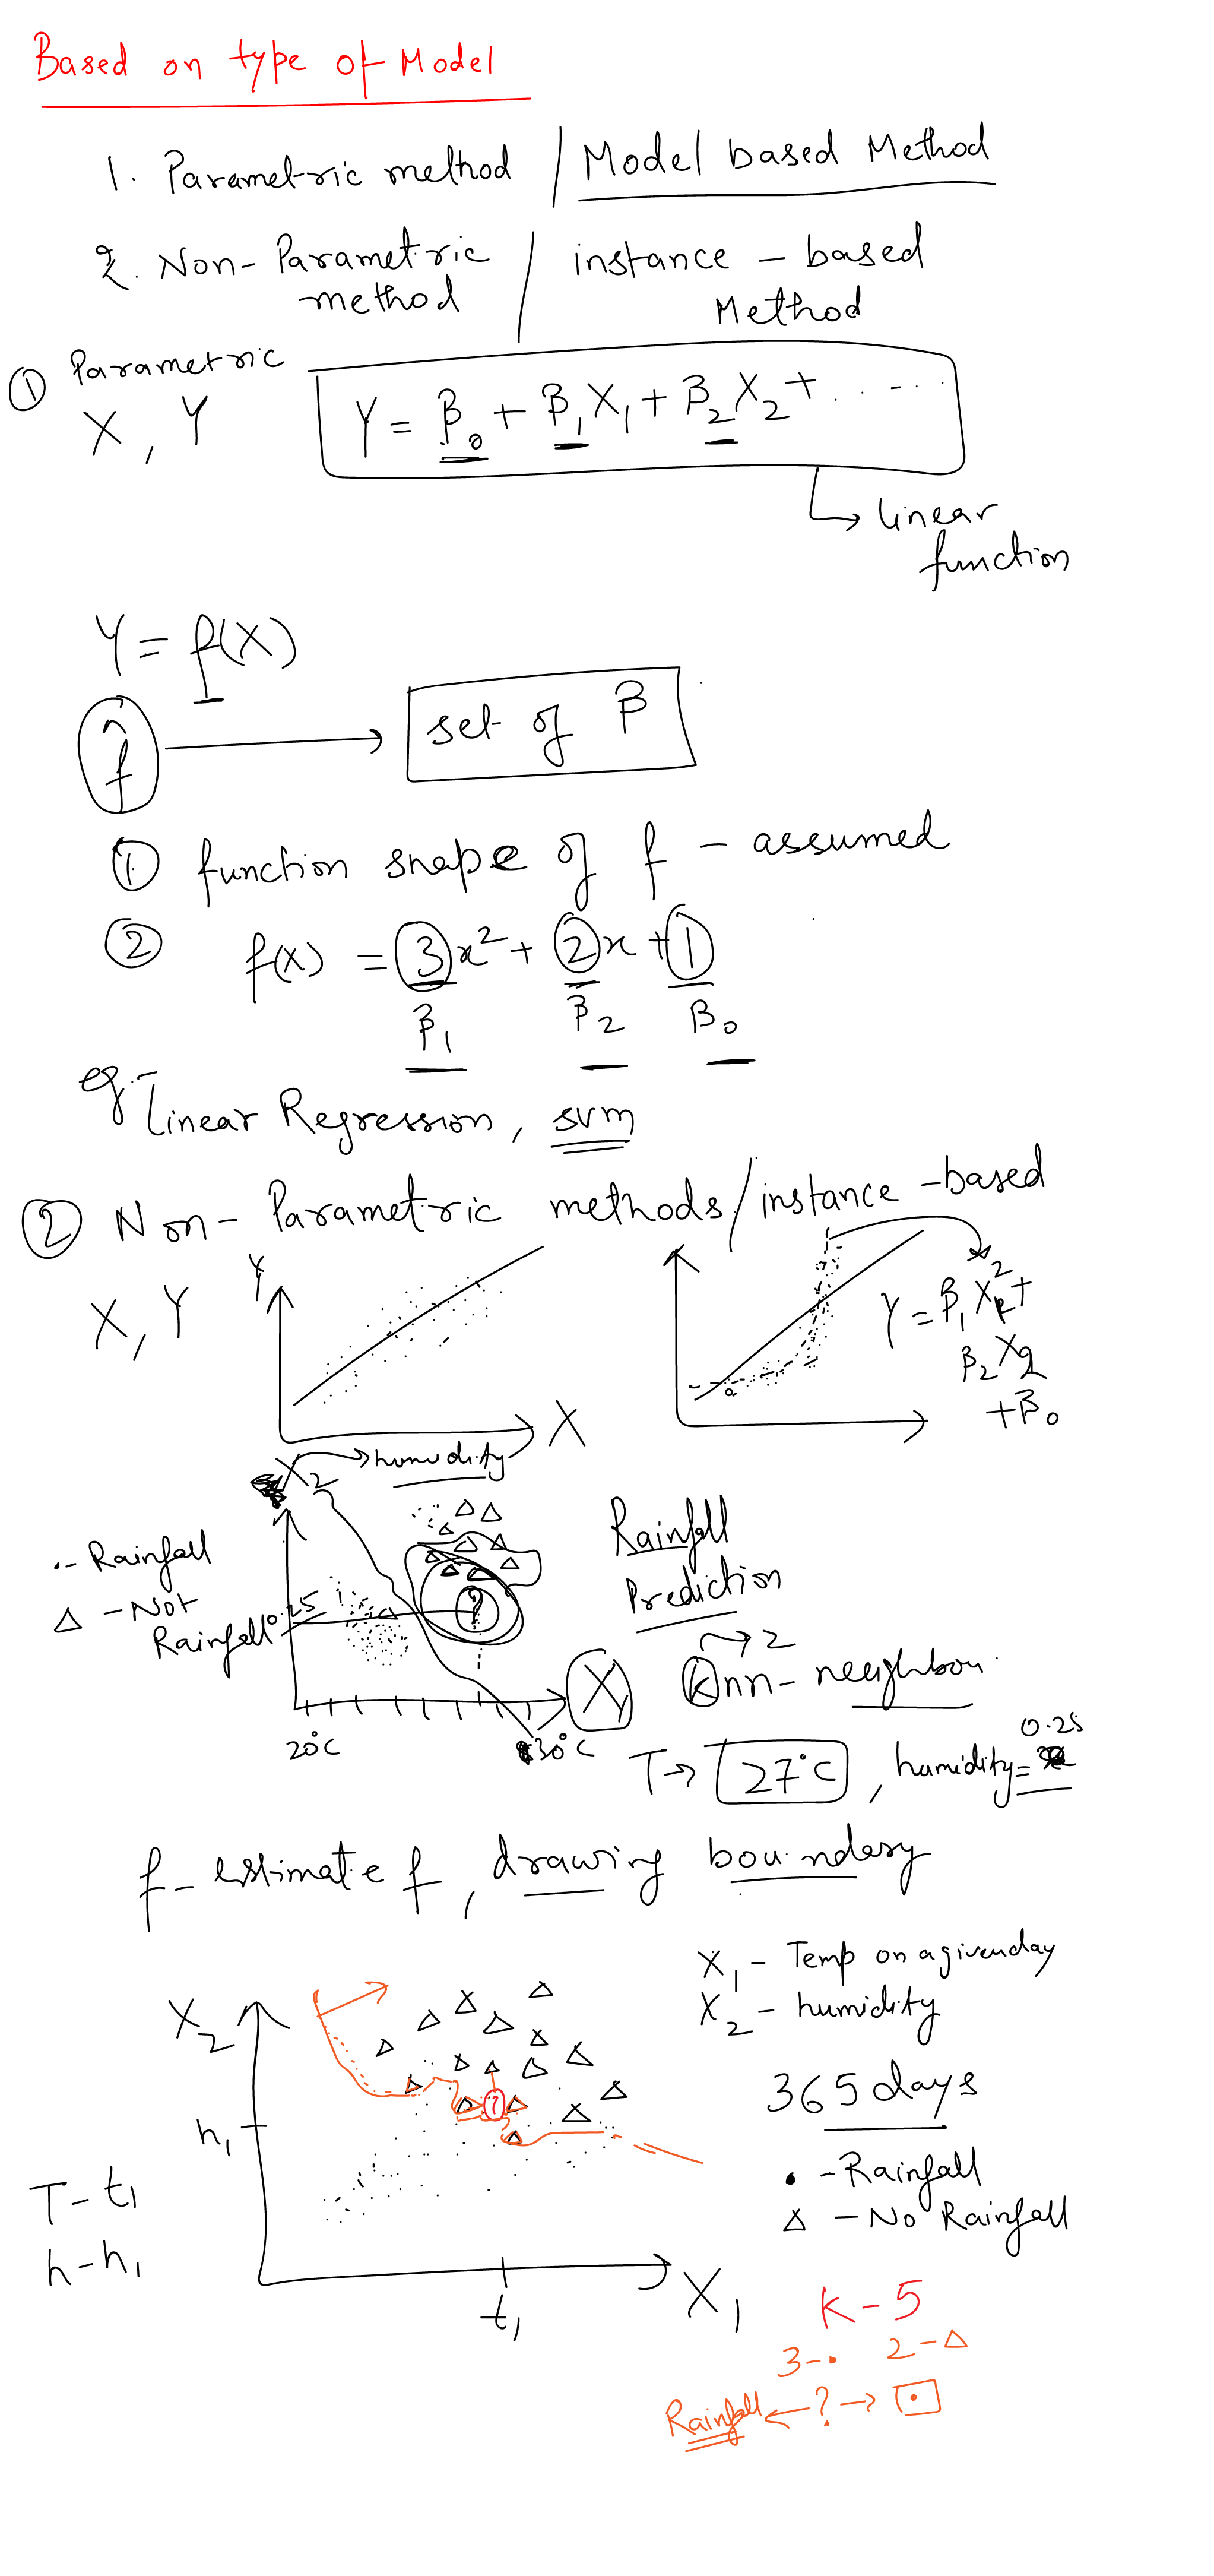 Based on type of Model
1. Parametric method / Model based Method
2. Non-Parametric method / instance-based Method
① Parametric
X, Y
Y = β₀ + β₁X₁ + β₂X₂ + ......
↳ linear function
Y = f(X)
f̂ → set of β
① function shape of f - assumed
② f(x) = 3x² + 2x + 1
β₁ β₂ β₀
eg Linear Regression, SVM
② Non-Parametric methods / instance-based
X, Y
Y
X
Y = β₁X₁² +
β₂X₂
+β₀
X₂ → humidity
·- Rainfall
△ - Not Rainfall
0.25
?
X₁
20°C
30°C
Rainfall Prediction
→ 2
knn - neighbou
T → 27°C, humidity = 0.25
f - estimate f, drawing boundary
X₁ - Temp on a given day
X₂ - humidity
365 days
• - Rainfall
△ - No Rainfall
X₂
h₁
?
T - t₁
h - h₁
t₁
X₁
K - 5
3 - • 2 - △
Rainfall ← ? → •